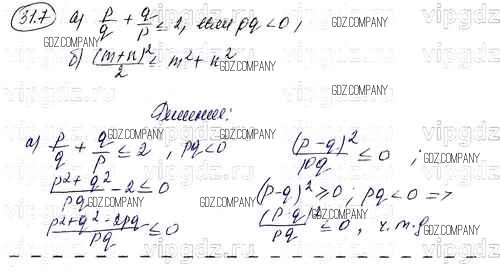 31.7 а) p/q + q/p ≤ 2, если pq < 0;
б) (m+n)²/2 ≤ m² + n²
Решение:
а) p/q + q/p ≤ 2, pq < 0
(p²+q²)/pq - 2 ≤ 0
(p²+q²-2pq)/pq ≤ 0
(p-q)²/pq ≤ 0;
(p-q)² ≥ 0; pq < 0 =>
(p-q)²/pq ≤ 0, ч.т.д.
GDZ.COMPANY
GDZ.COMPANY
GDZ.COMPANY
GDZ.COMPANY
GDZ.COMPANY
GDZ.COMPANY
GDZ.COMPANY
GDZ.COMPANY
GDZ.COMPANY
GDZ.COMPANY
GDZ.COMPANY
GDZ.COMPANY